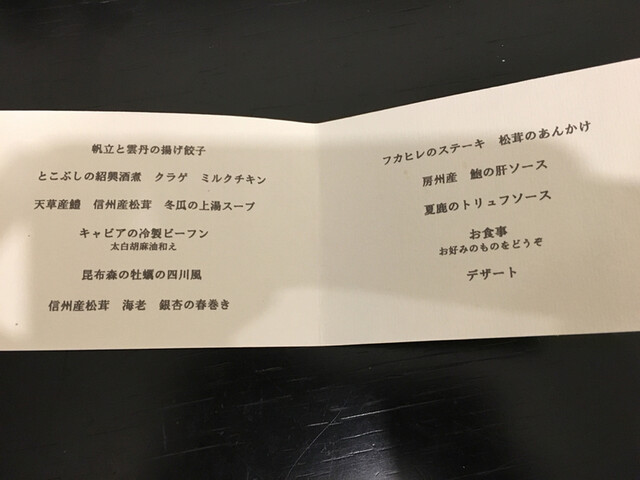 帆立と雲丹の揚げ餃子
とこぶしの紹興酒煮　クラゲ　ミルクチキン
天草産鱧　信州産松茸　冬瓜の上湯スープ
キャビアの冷製ビーフン
太白胡麻油和え
昆布森の牡蠣の四川風
信州産松茸　海老　銀杏の春巻き
フカヒレのステーキ　松茸のあんかけ
房州産　鮑の肝ソース
夏鹿のトリュフソース
お食事
お好みのものをどうぞ
デザート